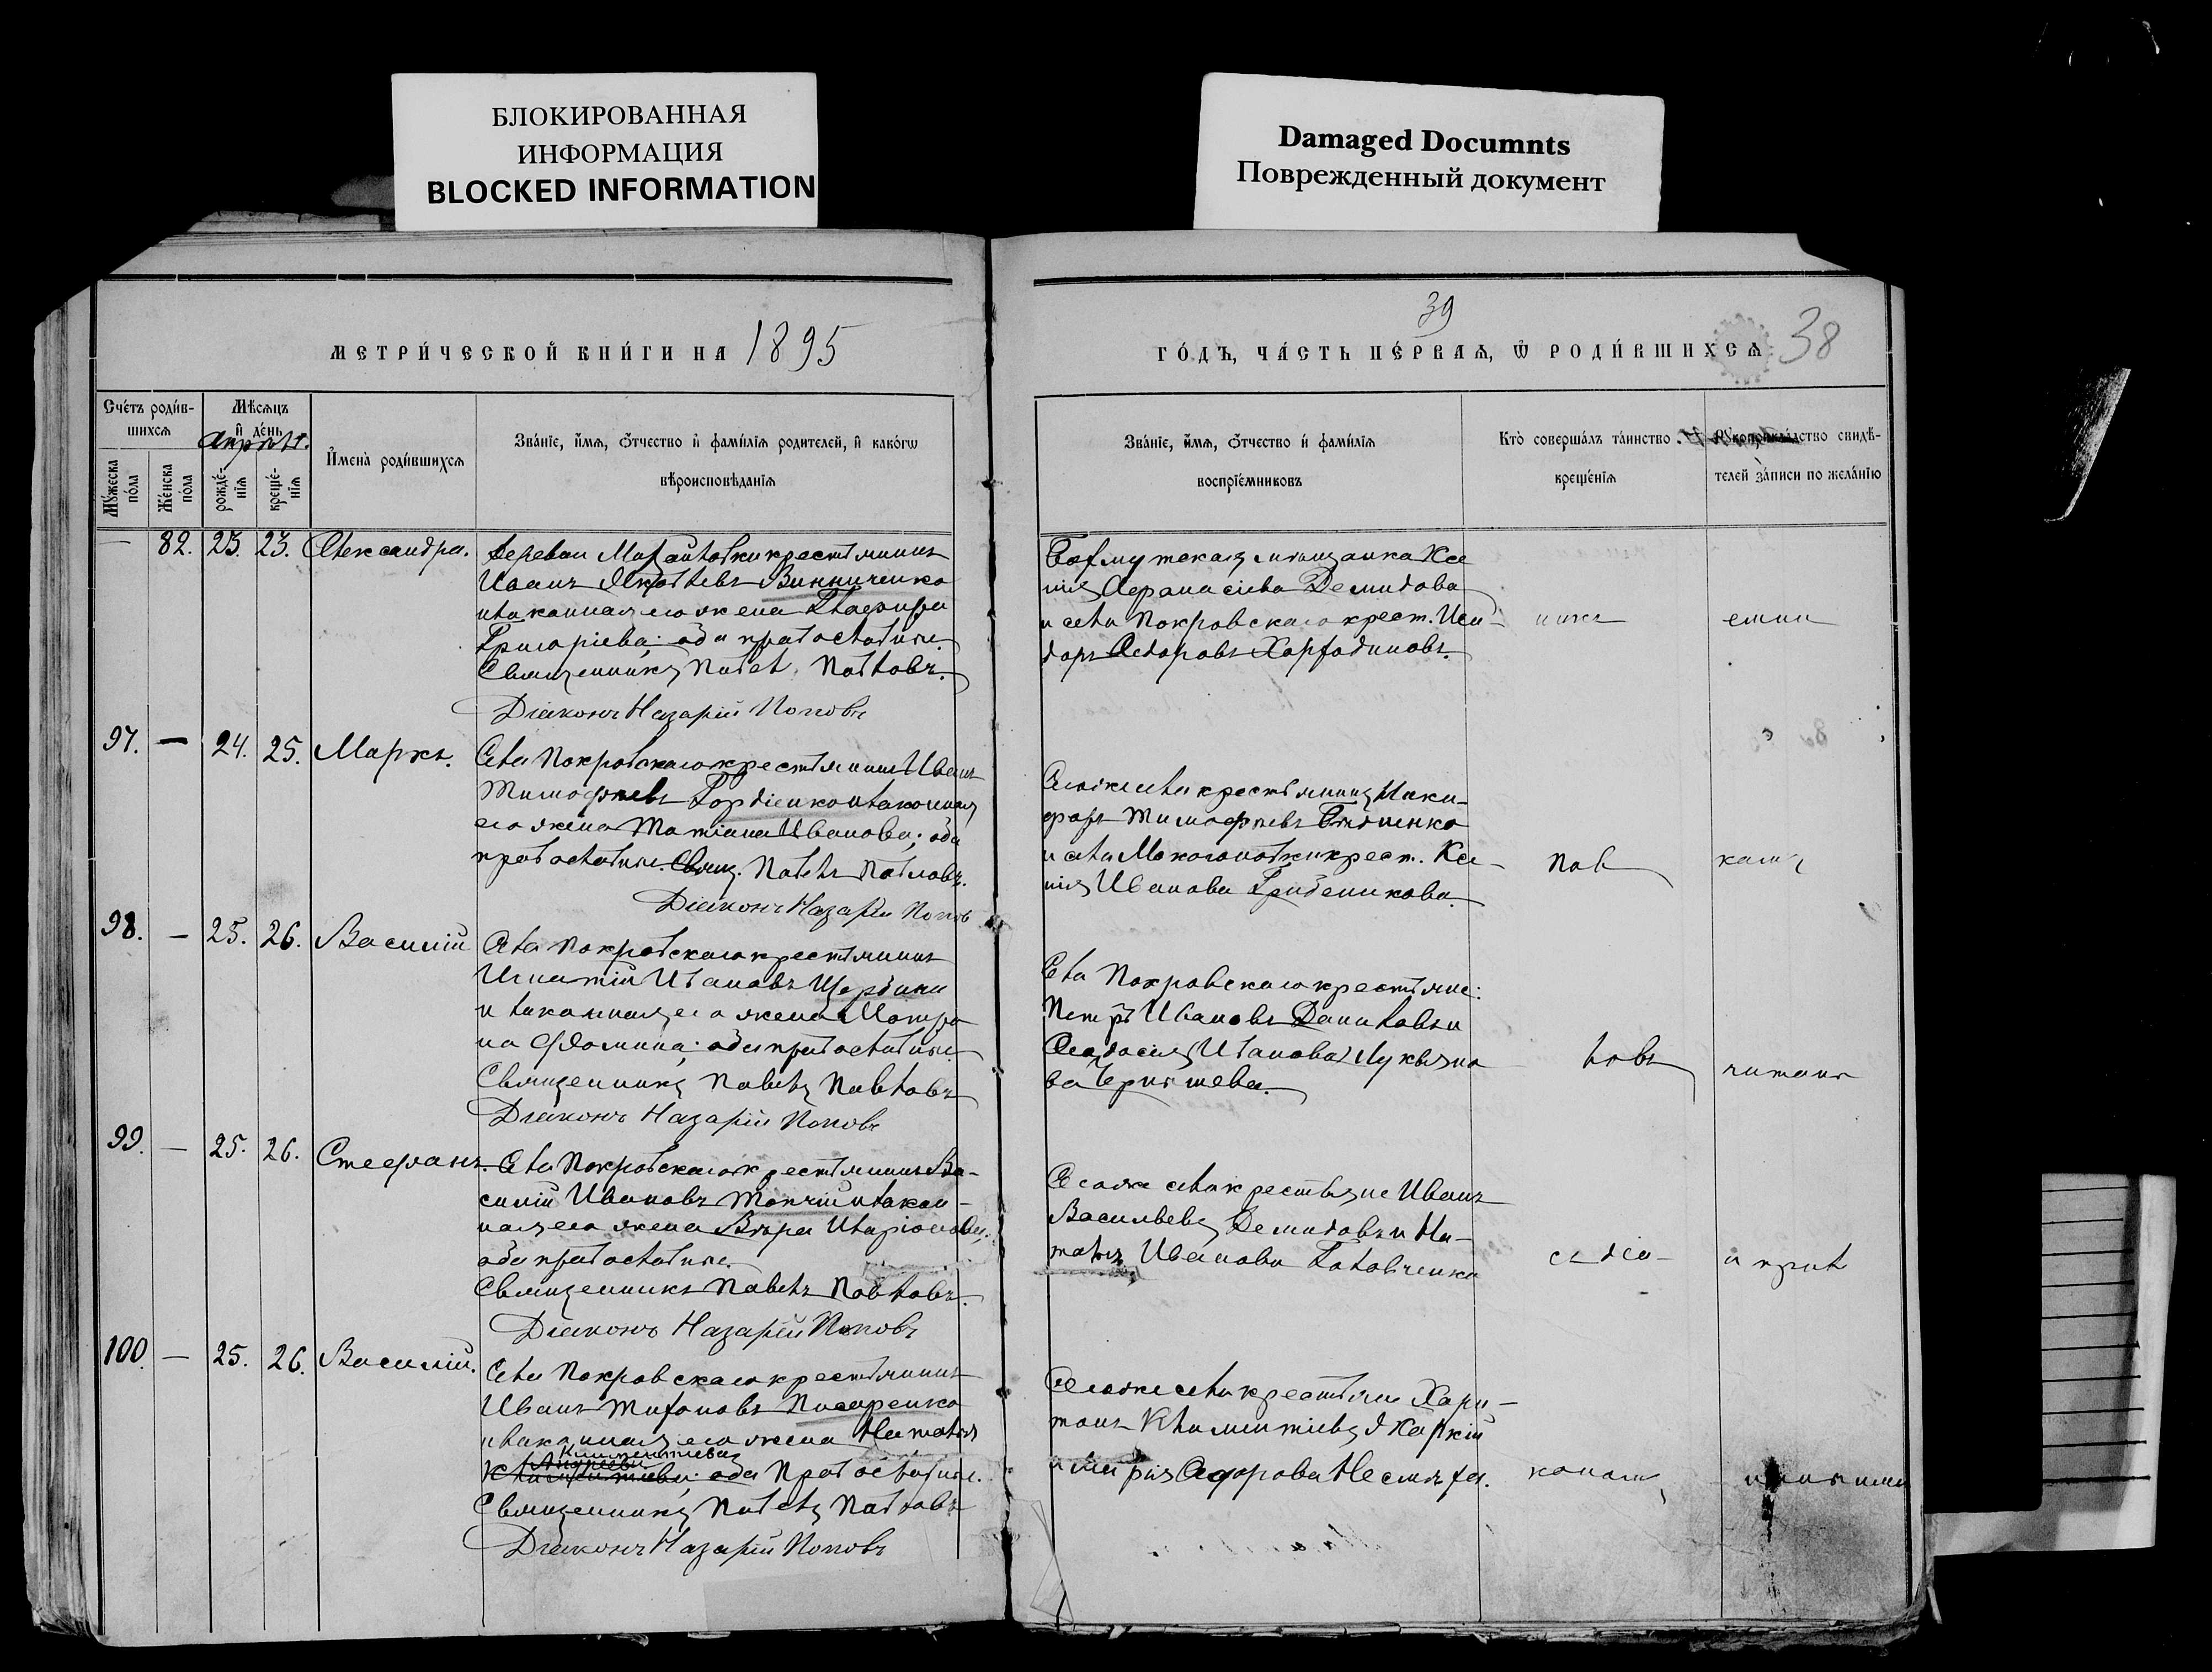 БЛОКИРОВАННАЯ
ИНФОРМАЦИЯ
BLOCKED INFORMATION
Damaged Documnts
Поврежденный документ
39
38
МЕТРИ́ЧЕСКОЙ КНИ́ГИ НА 1895
ГО́ДЪ, ЧА́СТЬ ПЕ́РВАѦ, Ѡ РОДИ́ВШИХСѦ
Сче́тъ роди́в-
шихсѧ
Мѣсѧцъ
и҆ де́нь
Апрѣль.
Мꙋ́жеска
по́ла
Же́нска
по́ла
рожде́-
нїѧ
креще́-
нїѧ
И҆мена̀ роди́вшихсѧ
Зва́нїе, и҆́мѧ, ѻ҆́тчество и҆ фами́лїѧ родителей, и҆ како́гѡ
вѣроисповѣ́данїѧ
Зва́нїе, и҆́мѧ, ѻ҆́тчество и҆ фами́лїѧ
воспрїе́мниковъ
Кто̀ соверша́лъ та́инство
креще́нїѧ
Рꙋкоприкла́дство свидѣ́-
телей за́писи по жела́нїю
— 82. 23. 23. Александра.
Деревни Михайловки крестьянинъ
Иванъ Яковлевъ Винниченко
и законная его жена Глафира
Григорiева; оба православные.
Священникъ Павелъ Павловъ.
Дiаконъ Назарiй Поповъ
Бахмутская мѣщанка Ксе
нiя Афанасiева Демидова
и села Покровскаго крест. Иси-
доръ Ѳедоровъ
97. — 24. 25. Маркъ.
Села Покровскаго крестьянинъ Иванъ
Тимофѣевъ Гордiенко и законная
его жена Татiана Иванова; оба
православные. Свящ. Павелъ Павловъ.
Дiаконъ Назарiй Попов
Того же села крестьянинъ Ники-
форъ Тимофѣевъ
и села крест. Ксе-
нiя Иванова Гребеникова.
Пав
98. — 25. 26. Василiй
Села Покровскаго крестьянинъ
Игнатiй Ивановъ Щербина
и законная его жена Матро
на Фомина; оба православные.
Священникъ Павелъ Павловъ
Дiаконъ Назарiй Поповъ
Села Покровскаго крестьяне:
Петръ Ивановъ Даниловъ и
Ѳеодосiя Иванова Лукьяно
ва Чернышева.
ловъ
99. — 25. 26. Стефанъ.
Села Покровскаго крестьянинъ Ва-
силiй Ивановъ Топчiй и закон-
ная его жена Вѣра Иларiонова;
оба православные.
Священникъ Павелъ Павловъ.
Дiаконъ Назарiй Поповъ
Того же села крестьяне Иванъ
Васильевъ Демидовъ и На-
талiя Иванова Головченко
съ дiа-
100. — 25. 26. Василiй.
Села Покровскаго крестьянинъ
Иванъ Тихоновъ Писаренко
и законная его жена Наталiя
Климентiева
оба православные.
Священникъ Павелъ Павловъ
Дiаконъ Назарiй Поповъ
Того же села крестьяне Хари-
тонъ Климентiевъ
и Марiя Ѳедорова
кономъ